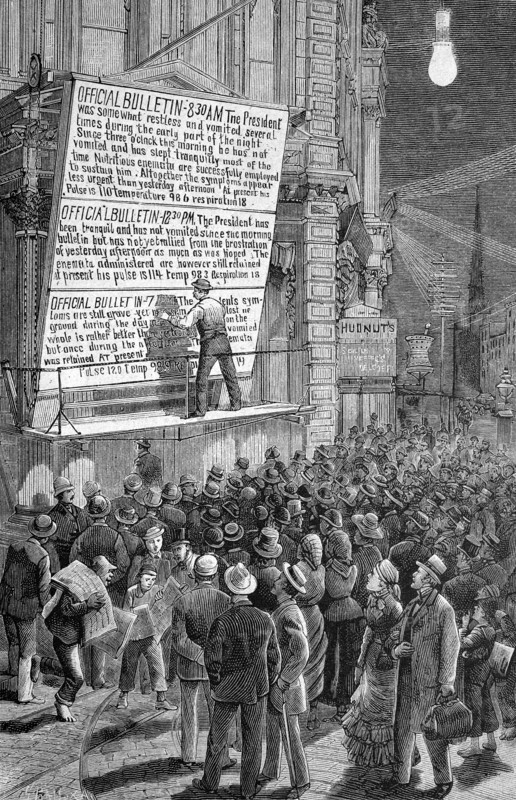 OFFICIAL BULLETIN-8 30 AM The President
was somewhat restless and vomited several
times during the early part of the night
Since three o'clock this morning he has not
vomited and has slept tranquilly most of the
time Nutritious enemata are successfully employed
to sustain him. Altogether the symptoms appear
less urgent than yesterday afternoon At present his
Pulse is 110 temperature 98 6 respiration 18
OFFICIAL BULLETIN-12 30 P.M. The President has
been tranquil and has not vomited since the morning
bulletin but has not yet rallied from the prostration
of yesterday afternoon as much as was hoped. The
enemata administered are however still retained
at present his pulse is 114 Temp 98 3 Respiration 18
OFFICIAL BULLETIN-7 The sym-
toms are still grave yet
ground during the day on the
whole is rather better vomited
but once during the
was retained At present
Pulse 120 Temp 19
HUDNUT'S